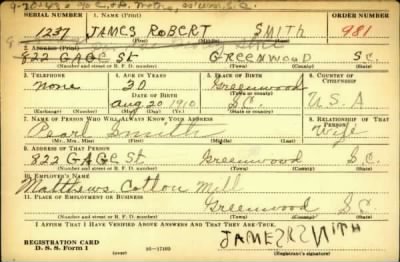 SERIAL NUMBER 1. NAME (Print) ORDER NUMBER
1237 JAMES ROBERT SMITH 981
(First) (Middle) (Last)
2. ADDRESS (Print)
822 GAGE St. GREENWOOD S.C.
(Number and street or R. F. D. number) (Town) (County) (State)
3. TELEPHONE 4. AGE IN YEARS 5. PLACE OF BIRTH 6. COUNTRY OF CITIZENSHIP
none 30 Greenwood
DATE OF BIRTH (Town or county)
Aug 20 1910 S.C. U.S.A
(Exchange) (Number) (Mo.) (Day) (Yr.) (State or country)
7. NAME OF PERSON WHO WILL ALWAYS KNOW YOUR ADDRESS 8. RELATIONSHIP OF THAT PERSON
Pearl Smith Wife
(Mr., Mrs., Miss) (First) (Middle) (Last)
9. ADDRESS OF THAT PERSON
822 GAGE St. Greenwood S.C.
(Number and street or R. F. D. number) (Town) (County) (State)
10. EMPLOYER'S NAME
Matthews Cotton Mill
11. PLACE OF EMPLOYMENT OR BUSINESS
Greenwood S.C.
(Number and street or R. F. D. number) (Town) (County) (State)
I AFFIRM THAT I HAVE VERIFIED ABOVE ANSWERS AND THAT THEY ARE TRUE.
REGISTRATION CARD
D. S. S. Form 1 (over) 16—17105 (Registrant's signature)